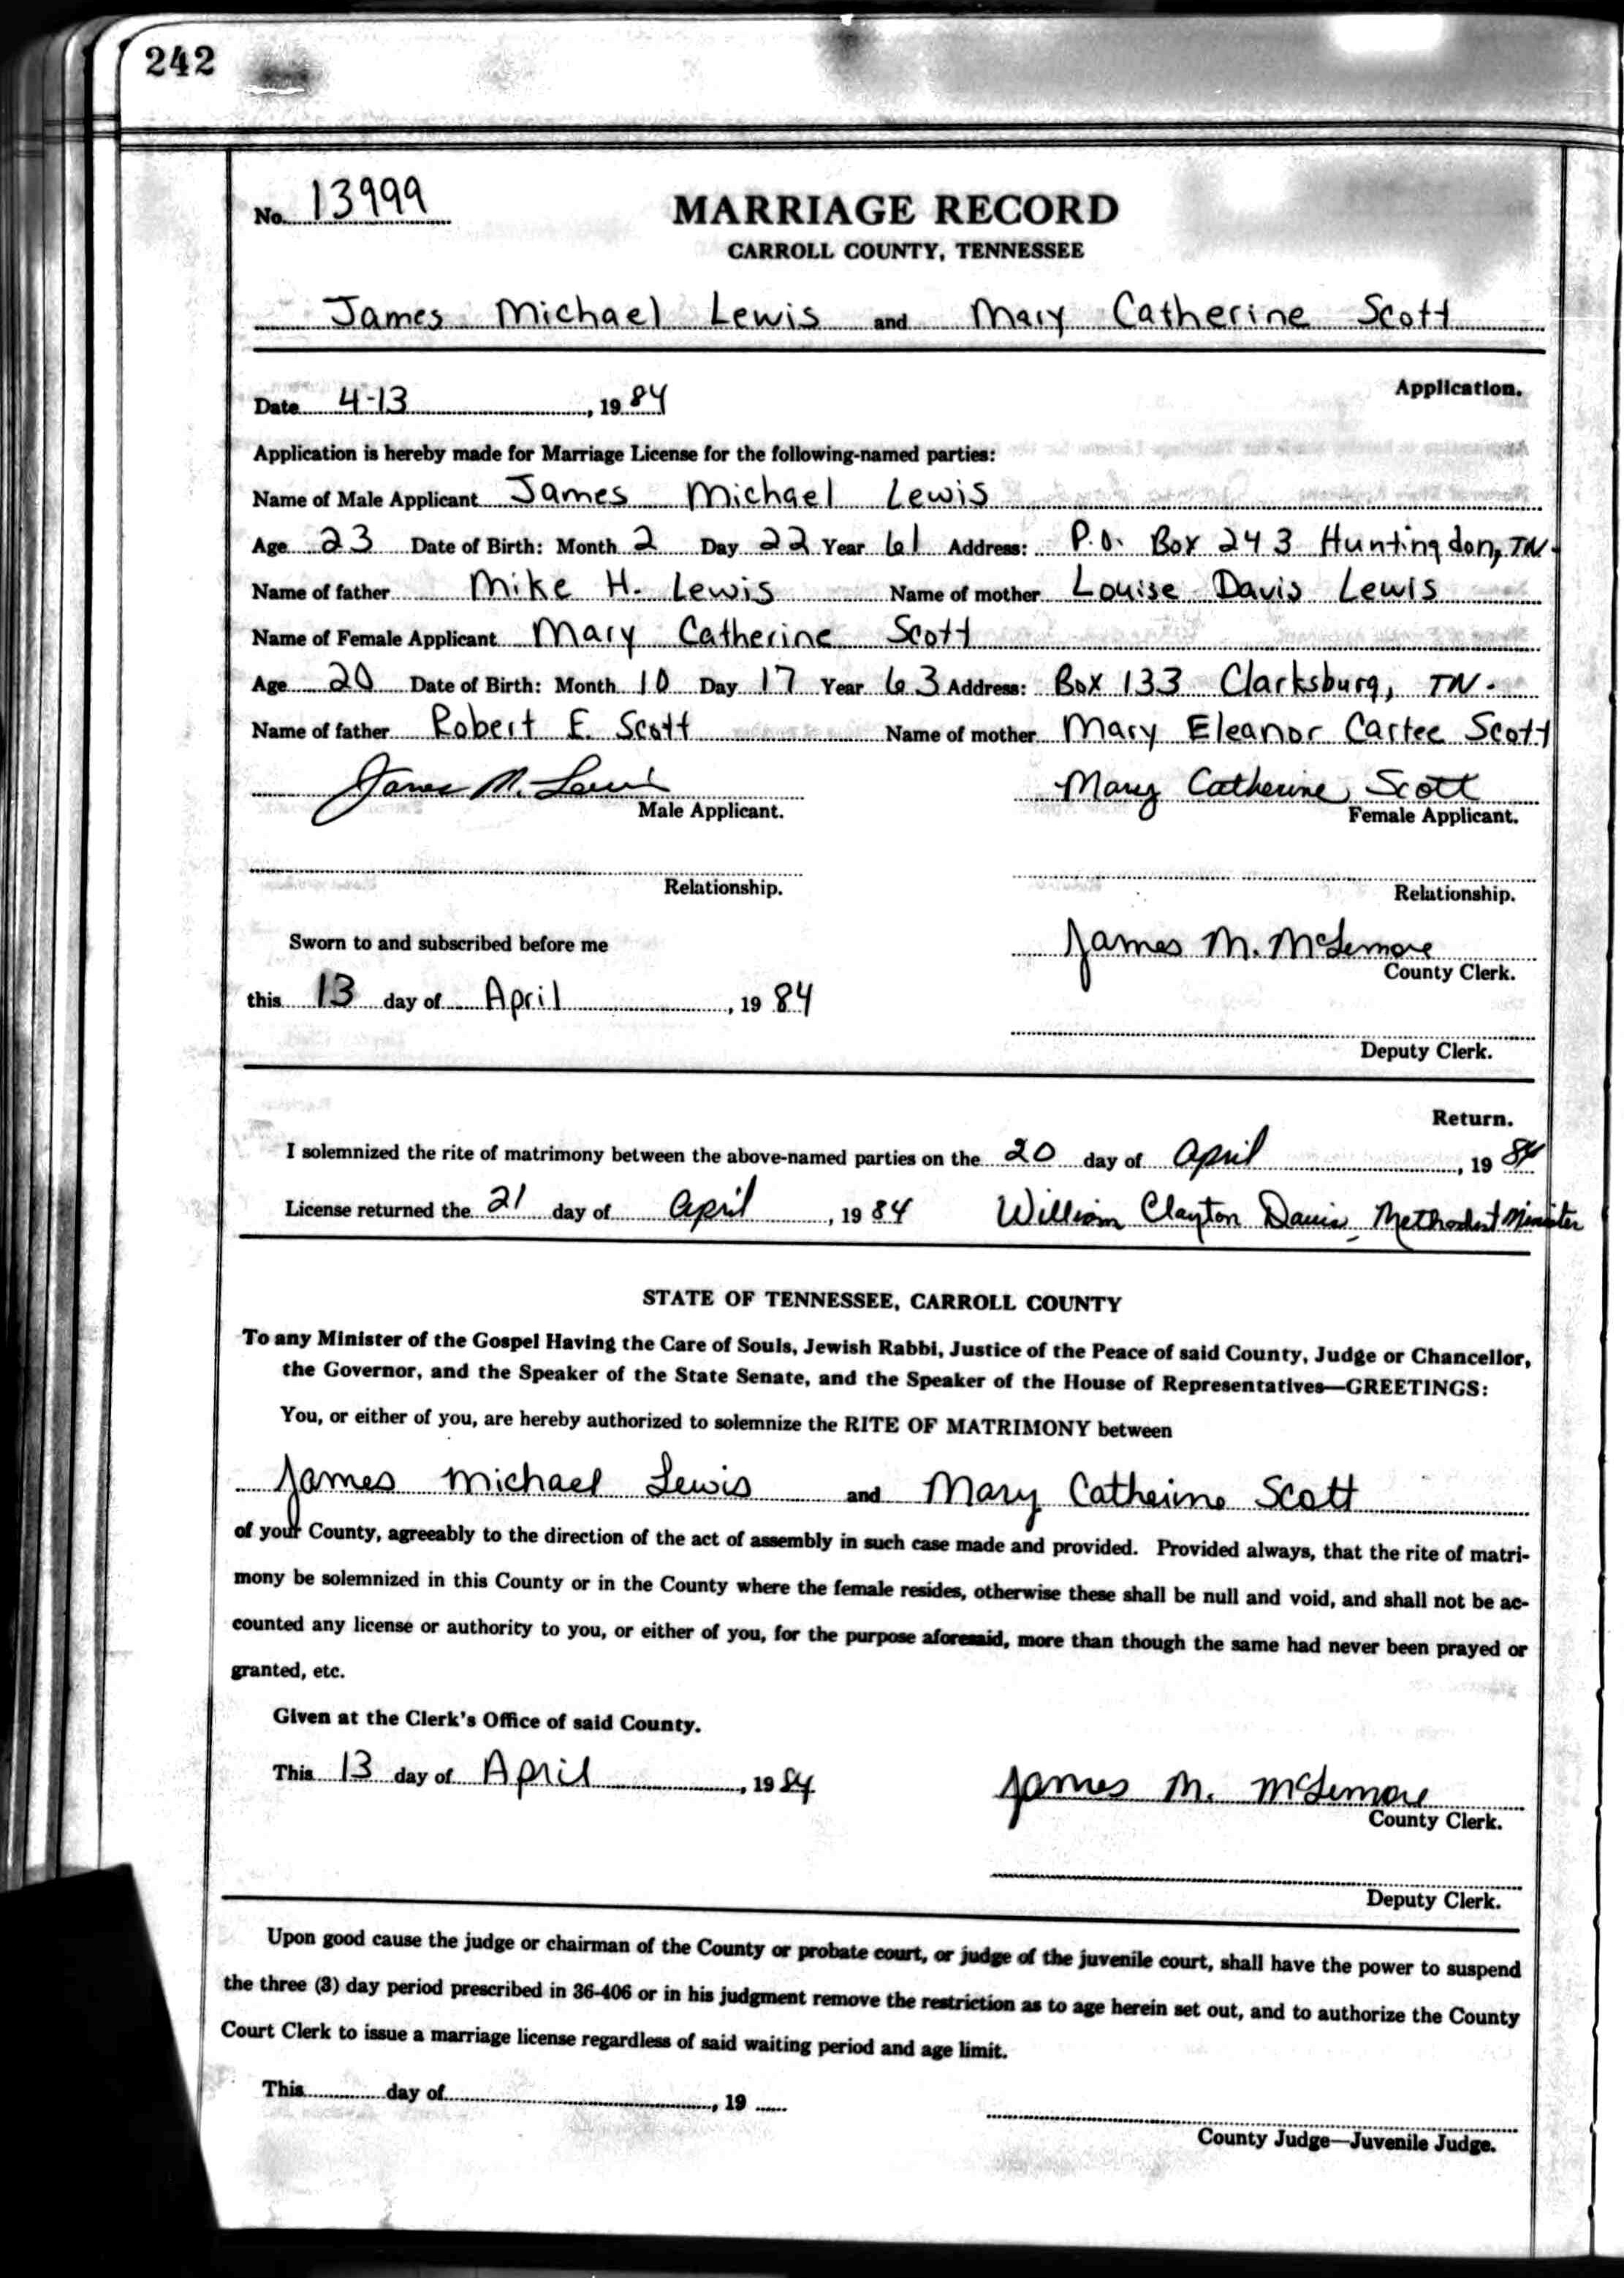 242
No. 13999
MARRIAGE RECORD
CARROLL COUNTY, TENNESSEE
James Michael Lewis and Mary Catherine Scott
Application.
Date 4-13, 1984
Application is hereby made for Marriage License for the following-named parties:
Name of Male Applicant James Michael Lewis
Age 23 Date of Birth: Month 2 Day 22 Year 61 Address: P.O. Box 243 Huntingdon, TN.
Name of father Mike H. Lewis Name of mother Louise Davis Lewis
Name of Female Applicant Mary Catherine Scott
Age 20 Date of Birth: Month 10 Day 17 Year 63 Address: Box 133 Clarksburg, TN.
Name of father Robert E. Scott Name of mother Mary Eleanor Cartee Scott
James M. Lewis Mary Catherine Scott
Male Applicant. Female Applicant.
Relationship. Relationship.
Sworn to and subscribed before me James M. McLemore
County Clerk.
this 13 day of April, 1984
Deputy Clerk.
Return.
I solemnized the rite of matrimony between the above-named parties on the 20 day of April, 1984
License returned the 21 day of April, 1984 William Clayton Davis, Methodist Minister
STATE OF TENNESSEE, CARROLL COUNTY
To any Minister of the Gospel Having the Care of Souls, Jewish Rabbi, Justice of the Peace of said County, Judge or Chancellor,
the Governor, and the Speaker of the State Senate, and the Speaker of the House of Representatives—GREETINGS:
You, or either of you, are hereby authorized to solemnize the RITE OF MATRIMONY between
James Michael Lewis and Mary Catherine Scott
of your County, agreeably to the direction of the act of assembly in such case made and provided. Provided always, that the rite of matri-
mony be solemnized in this County or in the County where the female resides, otherwise these shall be null and void, and shall not be ac-
counted any license or authority to you, or either of you, for the purpose aforesaid, more than though the same had never been prayed or
granted, etc.
Given at the Clerk's Office of said County.
This 13 day of April, 1984 James M. McLemore
County Clerk.
Deputy Clerk.
Upon good cause the judge or chairman of the County or probate court, or judge of the juvenile court, shall have the power to suspend
the three (3) day period prescribed in 36-406 or in his judgment remove the restriction as to age herein set out, and to authorize the County
Court Clerk to issue a marriage license regardless of said waiting period and age limit.
This day of, 19
County Judge—Juvenile Judge.